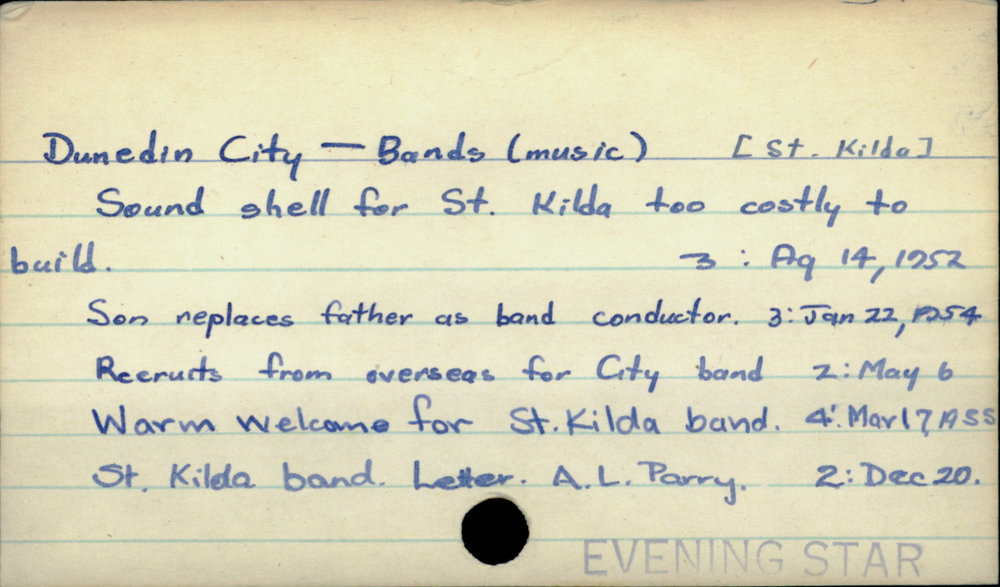 Dunedin City — Bands (music) [St. Kilda]
Sound shell for St. Kilda too costly to
build. 3 : Ag 14, 1952
Son replaces father as band conductor. 3: Jan 22, 1954
Recruits from overseas for City band 2: May 6
Warm welcome for St. Kilda band. 4: Mar 17, 1955
St. Kilda band. Letter. A.L. Parry. 2: Dec 20.
EVENING STAR